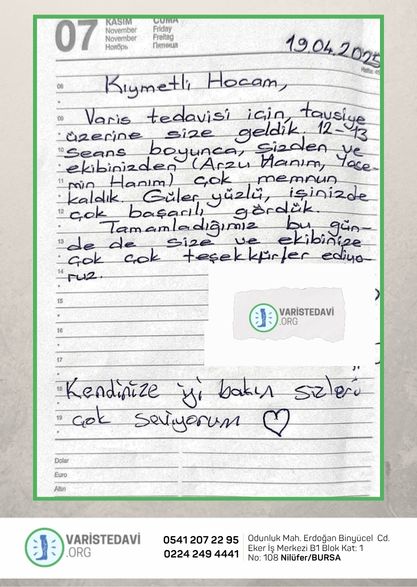 07
KASIM
November
November
Ноябрь
CUMA
Friday
Freitag
Пятница
19.04.2025
08
Kıymetli Hocam,
09
Varis tedavisi için, tavsiye
üzerine size geldik. 12-13
10
seans boyunca, sizden ve
ekibinizden (Arzu Hanım, Yase-
11
min Hanım) çok memnun
kaldık. Güler yüzlü, işinizde
12
çok başarılı gördük.
Tamamladığımız bu gün-
13
de de size ve ekibinize
çok çok teşekkürler ediyo-
14
ruz.
15
16
VARİSTEDAVİ
.ORG
17
18
Kendinize iyi bakın sizleri
19
çok seviyorum
Dolar
Euro
Altın
VARİSTEDAVİ
.ORG
0541 207 22 95
0224 249 4441
Odunluk Mah. Erdoğan Binyücel Cd.
Eker İş Merkezi B1 Blok Kat: 1
No: 108 Nilüfer/BURSA